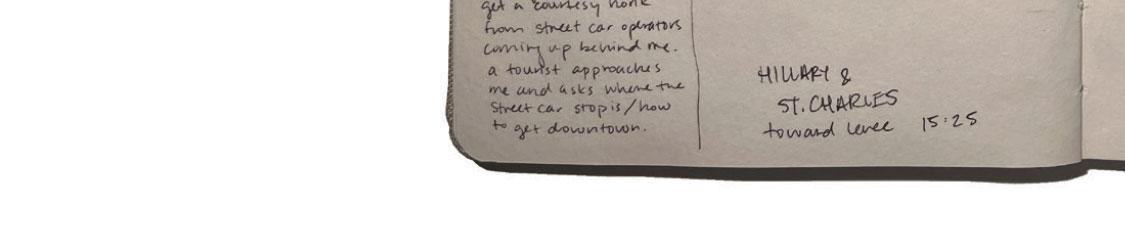 get a courtesy honk
from street car operators
coming up behind me.
a tourist approaches
me and asks where the
street car stop is/how
to get downtown.
HILLARY &
ST. CHARLES
toward levee 15:25